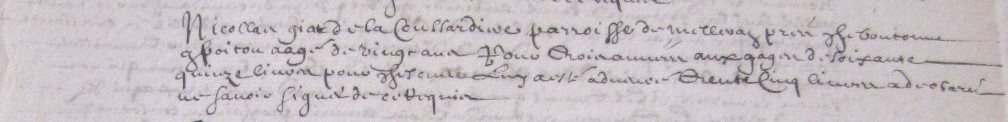 Nicollas giat de la Coullardiere parroisse de melleray près
en poitou aagé de vingt ans Pour trois annees aux gages de soixante
quinze livres pour chascune Luy a esté advancé trente cinq livres a declaré
ne savoir signer de ce requis